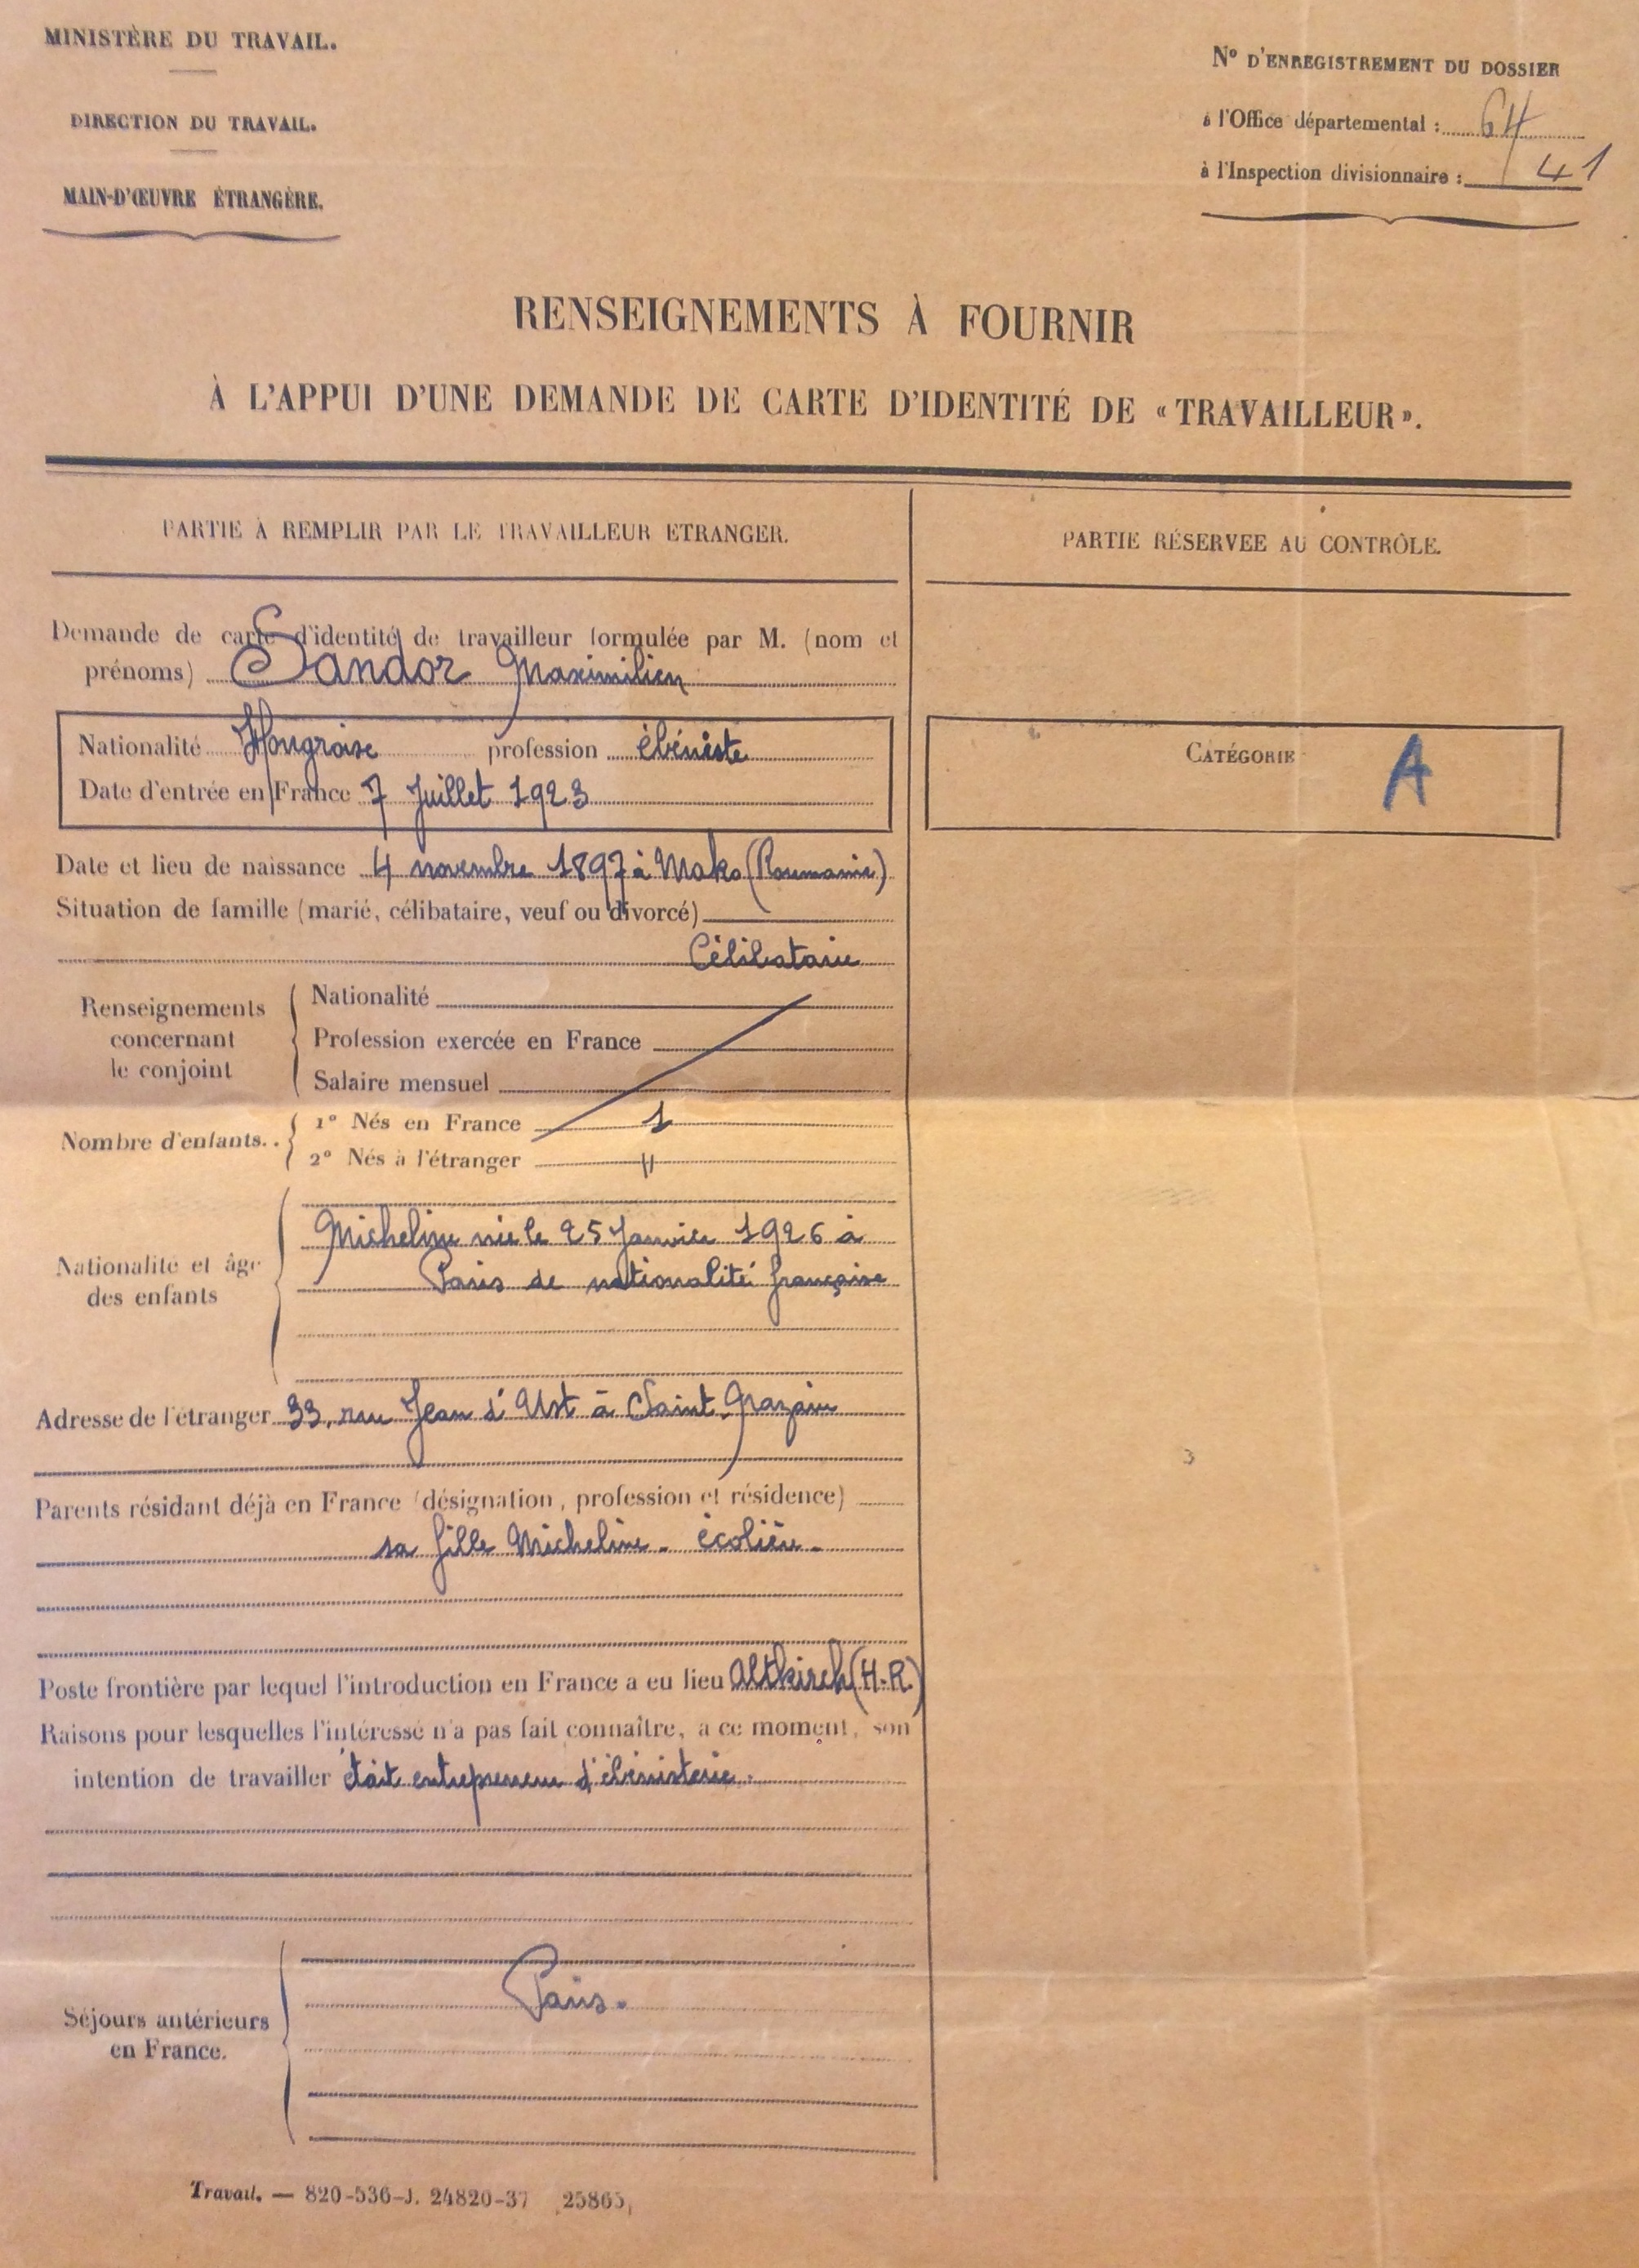 MINISTÈRE DU TRAVAIL.
DIRECTION DU TRAVAIL.
MAIN-D'ŒUVRE ÉTRANGÈRE.
N° D'ENREGISTREMENT DU DOSSIER
à l'Office départemental : 64
à l'Inspection divisionnaire : 41
RENSEIGNEMENTS À FOURNIR
À L'APPUI D'UNE DEMANDE DE CARTE D'IDENTITÉ DE « TRAVAILLEUR ».
PARTIE À REMPLIR PAR LE TRAVAILLEUR ETRANGER.
Demande de carte d'identité de travailleur formulée par M. (nom et
prénoms) Sandor Maximilien
Nationalité Hongroise profession ébéniste
Date d'entrée en France 7 Juillet 1923
Date et lieu de naissance 4 novembre 1897 à Mako (Roumanie)
Situation de famille (marié, célibataire, veuf ou divorcé)
Célibataire
Renseignements
concernant
le conjoint
Nationalité
Profession exercée en France
Salaire mensuel
Nombre d'enfants..
1° Nés en France 1
2° Nés à l'étranger "
Nationalité et âge
des enfants
Micheline née le 25 Janvier 1926 à
Paris de nationalité française
Adresse de l'étranger 33, rue Jean d'Ust à Saint-
Parents résidant déjà en France (désignation, profession et résidence)
sa fille Micheline - écolière -
Poste frontière par lequel l'introduction en France a eu lieu Altkirch (H-R)
Raisons pour lesquelles l'intéressé n'a pas fait connaître, à ce moment, son
intention de travailler était entrepreneur d'ébénisterie.
Séjours antérieurs
en France.
Paris.
Travail. — 820-536-J. 24820-37 25865
PARTIE RÉSERVEE AU CONTRÔLE.
CATÉGORIE A
3